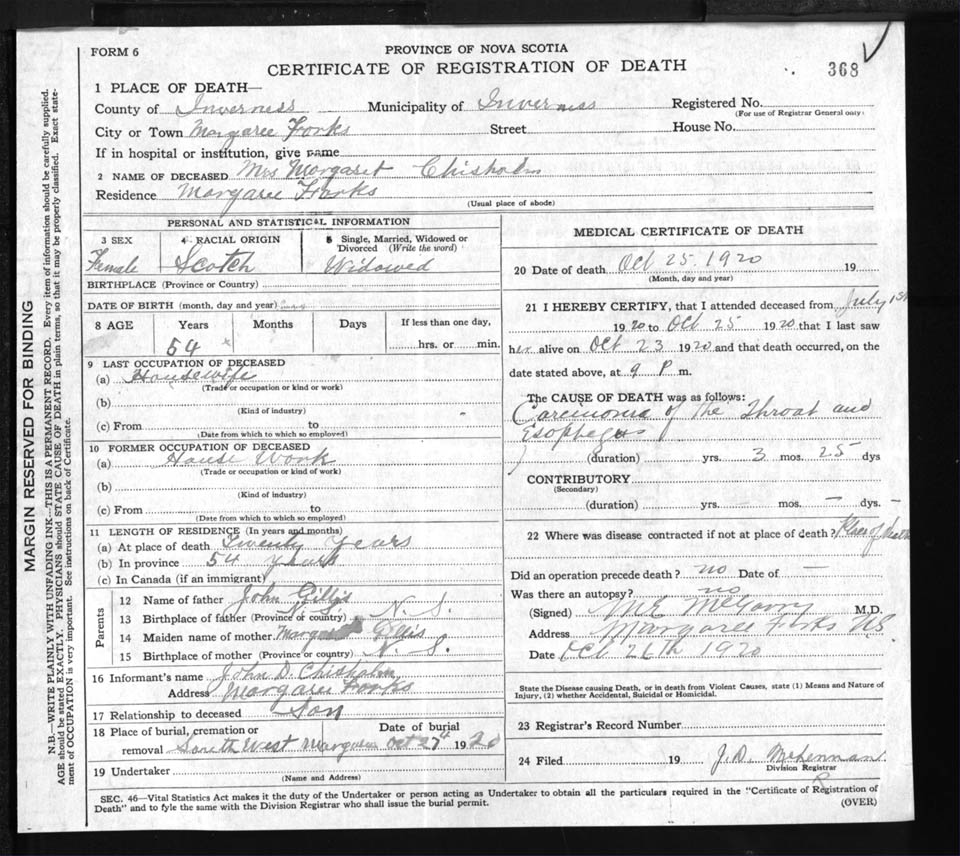 FORM 6
PROVINCE OF NOVA SCOTIA
CERTIFICATE OF REGISTRATION OF DEATH
368
1 PLACE OF DEATH—
County of Inverness Municipality of Inverness Registered No.
(For use of Registrar General only)
City or Town Margaree Forks Street House No.
If in hospital or institution, give name
2 NAME OF DECEASED Mrs Margaret Chisholm
Residence Margaree Forks
(Usual place of abode)
PERSONAL AND STATISTICAL INFORMATION
3 SEX 4 RACIAL ORIGIN 5 Single, Married, Widowed or Divorced (Write the word)
Female Scotch Widowed
BIRTHPLACE (Province or Country)
DATE OF BIRTH (month, day and year)
8 AGE Years Months Days If less than one day,
54 hrs. or min.
9 LAST OCCUPATION OF DECEASED
(a) Housewife
(Trade or occupation or kind or work)
(b)
(Kind of industry)
(c) From to
(Date from which to which so employed)
10 FORMER OCCUPATION OF DECEASED
(a) House Work
(Trade or occupation or kind of work)
(b)
(Kind of industry)
(c) From to
(Date from which to which so employed)
11 LENGTH OF RESIDENCE (In years and months)
(a) At place of death Twenty Years
(b) In province 54 years
(c) In Canada (if an immigrant)
Parents
12 Name of father John Gillis
13 Birthplace of father (Province or country) N. S. N. S.
14 Maiden name of mother Margaret Gillis
15 Birthplace of mother (Province or country) N. S.
16 Informant's name John D. Chisholm
Address Margaree Forks
17 Relationship to deceased Son
18 Place of burial, cremation or Date of burial
removal South West Margaree Oct 27th 1920
19 Undertaker
(Name and Address)
MEDICAL CERTIFICATE OF DEATH
20 Date of death Oct 25. 1920 19
(Month, day and year)
21 I HEREBY CERTIFY, that I attended deceased from July 1st
1920 to Oct 25 1920 that I last saw
her alive on Oct 23 1920 and that death occurred, on the
date stated above, at 9 P m.
The CAUSE OF DEATH was as follows:
Carcinoma of the Throat and
Esophegus
(duration) yrs. 3 mos. 25 dys
CONTRIBUTORY
(Secondary)
(duration) yrs. — mos. — dys. —
22 Where was disease contracted if not at place of death? Place of death
Did an operation precede death? no Date of —
Was there an autopsy? no
(Signed) M.E. McGarry M.D.
Address Margaree Forks N.S.
Date Oct 26th 1920
State the Disease causing Death, or in death from Violent Causes, state (1) Means and Nature of
Injury, (2) whether Accidental, Suicidal or Homicidal.
23 Registrar's Record Number
24 Filed 19 J. D. McLennan
Division Registrar
SEC. 46—Vital Statistics Act makes it the duty of the Undertaker or person acting as Undertaker to obtain all the particulars required in the "Certificate of Registration of
Death" and to fyle the same with the Division Registrar who shall issue the burial permit.
(OVER)
MARGIN RESERVED FOR BINDING
N.B.—WRITE PLAINLY WITH UNFADING INK—THIS IS A PERMANENT RECORD. Every item of information should be carefully supplied.
AGE should be stated EXACTLY. PHYSICIANS should STATE CAUSE OF DEATH in plain terms, so that it may be properly classified. Exact state-
ment of OCCUPATION is very important. See instructions on back of Certificate.